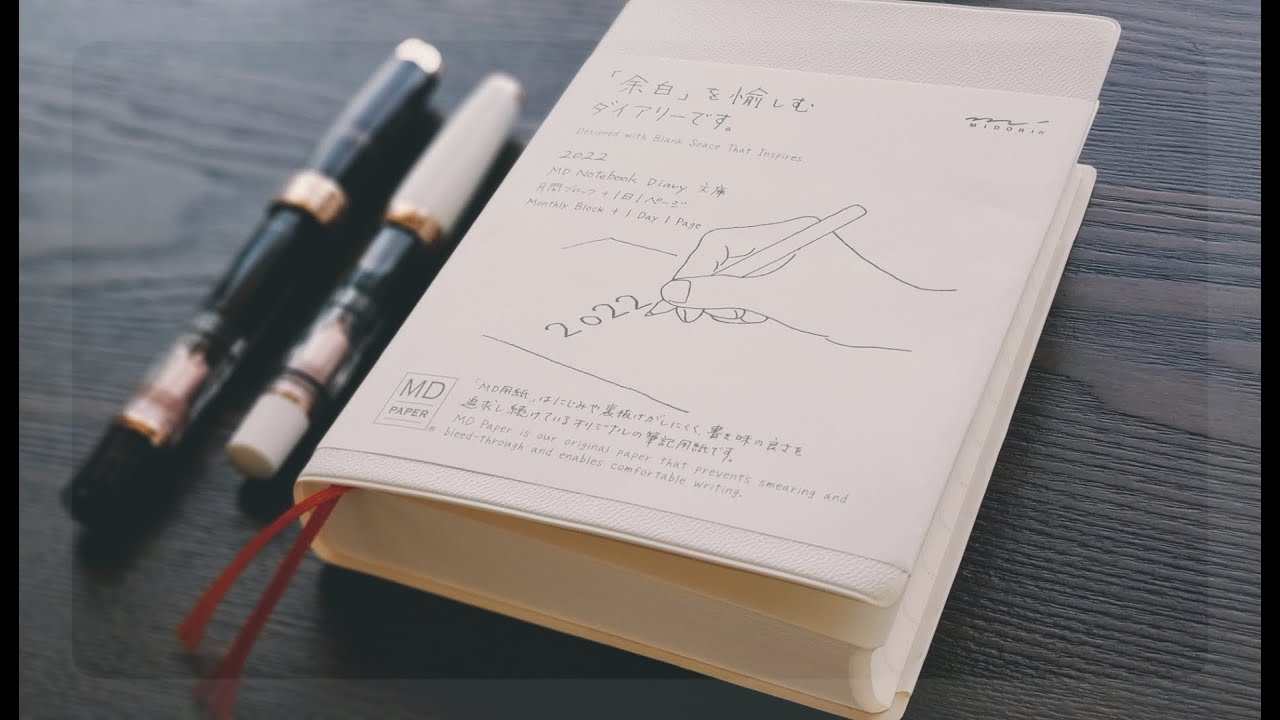 「余白」を愉しむ
ダイアリーです。
Designed with Blank Space That Inspires
MIDORI
2022
MD Notebook Diary 文庫
月間ブロック+1日1ページ
Monthly Block + 1 Day 1 Page
2022
MD
PAPER
®
「MD用紙」はにじみや裏抜けがしにくく、書き味の良さを
追求し続けているオリジナルの筆記用紙です。
MD Paper is our original paper that prevents smearing and
bleed-through and enables comfortable writing.